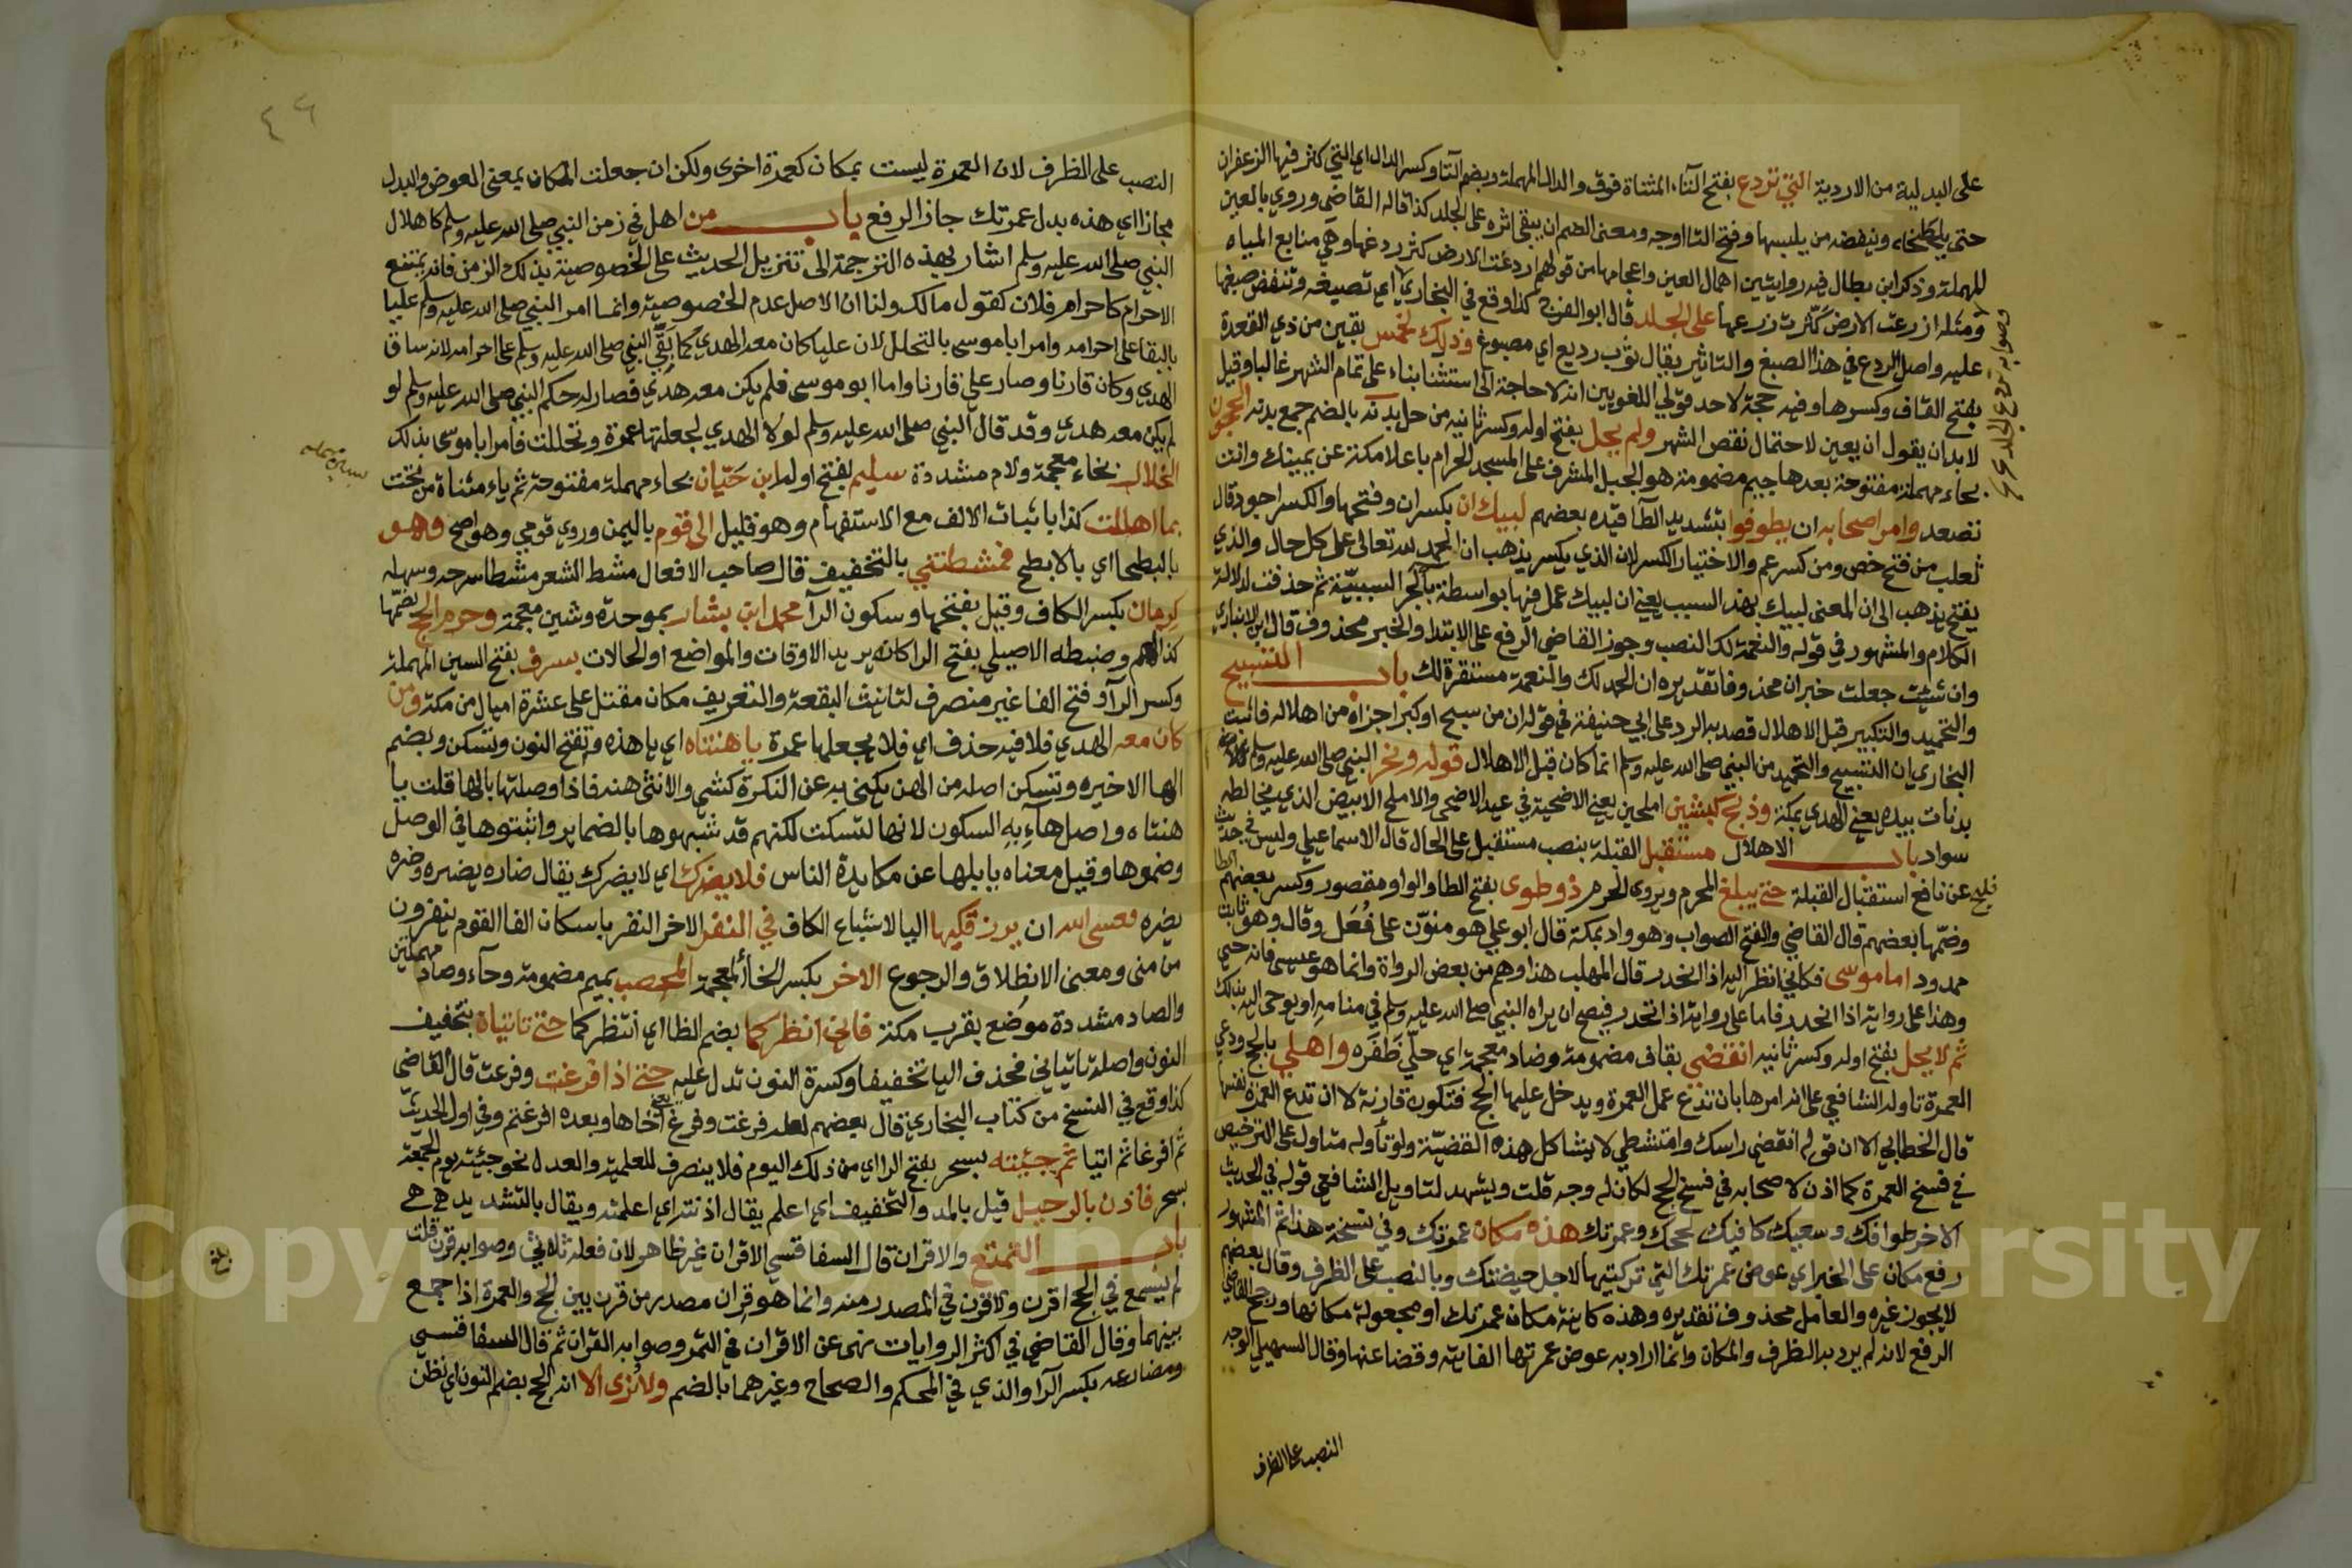 على البدلية من الاردية التي تردع بفتح التاء المثناة فوق والدال المهملة وبضم التا وكسر الدال اي التي كثر فيها الزعفران
حتى يلطخه وينفضه من يلبسها وفتح التا اوجه ومعنى الضم ان يبقى اثره على الجلد كذا قاله القاضي وروي بالعين
المهملة وذكر ابن بطال فيه روايتين اهمال العين واعجامها من قولهم اردغت الارض كثر ردغها وهي منابع المياه
ومثله ازرعت الارض كثرت زرعها على الجلد قال ابو الفرج كذا وقع في البخاري اي تصبغه وتنفض صبغها
عليه واصل الردع في هذا الصبغ والتاثير يقال ثوب رديع اي مصبوغ وذلك لخمس بقين من ذي القعدة
بفتح القاف وكسرها وفيه حجة لاحد قولي اللغويين انه لا حاجة الى استثنا بناء على تمام الشهر غالبا وقيل
لا بد ان يقول ان بقين لاحتمال نقص الشهر ولم يحل بفتح اوله وكسر ثانيه من حل بدنه بالضم جمع بدنة الحجون
بحاء مهملة مفتوحة بعدها جيم مضمومة هو الجبل المشرف على المسجد الحرام باعلا مكة عن يمينك وانت
تصعد وامر اصحابه ان يطوفوا بتشديد الطا قيده بعضهم لبيك ان بكسر ان وفتحها والكسر اجود قال
ثعلب من فتح خص ومن كسر عم والاختيار الكسر لان الذي يكسر يذهب ان الحمد لله تعالى على كل حال والذي
يفتح يذهب الى ان المعنى لبيك بهذا السبب يعني ان لبيك عمل فيها بواسطة باء الجر السببية ثم حذفت لدلالة
الكلام والمشهور في قوله والنعمة لك النصب وجوز القاضي الرفع على الابتدا والخبر محذوف قال ابن الانباري
وان شئت جعلت خبر ان محذوفا تقديره ان الحمد لك والنعمة مستقرة لك باب التسبيح
والتحميد والتكبير قبل الاهلال قصد به الرد على ابي حنيفة في قوله ان من سبح او كبر اجزاه من اهلاله فاثبت
البخاري ان التسبيح والتحميد من النبي صلى الله عليه وسلم انما كان قبل الاهلال قوله ونحر النبي صلى الله عليه وسلم
بدنات بيده يعني الهدي بمكة وذبح كبشين املحين يعني الاضحية في عيد الاضحى والاملح الابيض الذي يخالطه
سواد باب الاهلال مستقبل القبلة بنصب مستقبل على الحال قال الاسماعيلي وليس في حديث
فليح عن نافع استقبال القبلة حتى يبلغ المحرم ويروى الحرم ذو طوى بفتح الطا والواو مقصور وكسر بعضهم الطا
وضمها بعضهم قال القاضي والفتح الصواب وهو واد بمكة قال ابو علي هو منوّن على فُعَل وقال وهو ثابت
ممدود اما موسى فكاني انظر اليه اذا انحدر قال المهلب هذا وهم من بعض الرواة وانما هو عيسى فانه حي
وهذا على رواية اذا انحدر فاما على رواية اذ انحدر فيصح ان يراه النبي صلى الله عليه وسلم في منامه او يوحى اليه بذلك
ثم لا يحل بفتح اوله وكسر ثانيه انقضي بقاف مضمومة وضاد معجمة اي حلّي ظفره واهلي بالحج ودعي
العمرة تاوله الشافعي على انه امرها بان تدع عمل العمرة ويدخل عليها الحج فتكون قارنة لا ان تدع العمرة نفسها
قال الخطابي الا ان قوله انقضي راسك وامتشطي لا يشاكل هذه القضيّة ولو تأوله متاول على الترخيص
في فسخ العمرة كما اذن لاصحابه في فسخ الحج لكان له وجه قلت ويشهد لتاويل الشافعي قوله في الحديث
الاخر طوافك وسعيك كافيك لحجك وعمرتك هذه مكان عمرتك وفي نسخة هذا ثم المشهور
رفع مكان على الخبر اي عوض عمرتك التي تركتيها لاجل حيضتك وبالنصب على الظرف وقال بعضهم
لا يجوز غيره والعامل محذوف تقديره وهذه كاينة مكان عمرتك او مجعولة مكانها ورجح القاضي
الرفع لانه لم يرد به الظرف والمكان وانما اراد به عوض عمرتها الفايتة وقضا عنها وقال السهيلي الوجه
النصب على الظرف
وصوابه تردع الجلد
٤٦
النصب على الظرف لان العمرة ليست بمكان كعمرة اخرى ولكن ان جعلت المكان بمعنى العوض والبدل
مجازا اي هذه بدل عمرتك جاز الرفع باب من اهل في زمن النبي صلى الله عليه وسلم كاهلال
النبي صلى الله عليه وسلم اشار بهذه الترجمة الى تنزيل الحديث على الخصوصية بذلك الزمن فانه يمتنع
الاحرام كاحرام فلان كقول مالك ولنا ان الاصل عدم الخصوصية وانما امر النبي صلى الله عليه وسلم عليا
بالبقا على احرامه وامر ابا موسى بالتحلل لان عليا كان معه الهدي كما بَقَّى النبي صلى الله عليه وسلم على احرامه لانه ساق
الهدي وكان قارنا وصار علي قارنا واما ابو موسى فلم يكن معه هدي فصار له حكم النبي صلى الله عليه وسلم لو
لم يكن معه هدي وقد قال النبي صلى الله عليه وسلم لولا الهدي لجعلتها عمرة وتحللت فامر ابا موسى بذلك
الخلال بخاء معجمة ولام مشددة سليم بفتح اوله ابن حَيّان بحاء مهملة مفتوحة ثم ياء مثناة من تحت
بما اهللت كذا باثبات الالف مع الاستفهام وهو قليل الى قوم باليمن وروي قومي وهو اصح وهو
بالبطحا اي بالابطح فمشطتني بالتخفيف قال صاحب الافعال مشط الشعر مشطا سرحه وسهله
كرمان بكسر الكاف وقيل بفتحها وسكون الرآ محمد ابن بشار بموحدة وشين معجمة وحرم الحج بضمّها
كذا لهم وضبطه الاصيلي بفتح الرا كانه يريد الاوقات والمواضع او الحالات بسرف بفتح السين المهملة
وكسر الرآ وفتح الفا غير منصرف لتانيث البقعة والتعريف مكان مقتل على عشرة اميال من مكة ومن
كان معه الهدي فلا فيه حذف اي فلا يجعلها عمرة يا هنتاه اي يا هذه وتفتح النون وتسكن وبضم
الها الاخيره وتسكن اصله من الهن يكنى به عن النكرة كشي والانثى هنة فاذا وصلتها بالها قلت يا
هنتاه واصل هآءِ بهِ السكون لانها للسكت لكنهم قد شبهوها بالضماير واثبتوها في الوصل
وضموها وقيل معناه يا بلها عن مكايدة الناس فلا يضرك اي لا يضرك يقال ضاره يضيره وضره
يضره فعسى الله ان يرزقكيها اليا لاشباع الكاف في النفر الاخر النفر باسكان الفا القوم ينفرون
من منى ومعنى الانطلاق والرجوع الاخر بكسر الخا المعجمة المحصب بميم مضمومة وحآء وصاد مهملتين
والصاد مشددة موضع بقرب مكة فاني انظركما بضم الظا اي انتظركما حتى تاتياني بتخفيف
النون واصله تاتيانني فحذف اليا تخفيفا وكسرة النون تدل عليه حتى اذا فرغت وفرغت قال القاضي
كذا وقع في النسخ من كتاب البخاري قال بعضهم لعله فرغت وفرغ يعني اخاها وبعده افرغتم وفي اول الحديث
ثم افرغا ثم ائتيا ثم جئته بسحر بفتح الرا اي من ذلك اليوم فلا ينصرف للعلمية والعدل نحو جئته يوم الجمعة
سحر فآذن بالرحيل قيل بالمد والتخفيف اي اعلم يقال اذنته اي اعلمته ويقال بالتشديد
باب التمتع والاقران قال السفاقسي الاقران غير ظاهر لان فعله ثلاثي وصوابه قرن قلت
لم يسمع في الحج اقرن ولا قرن في المصدر منه وانما هو قران مصدر من قرن بين الحج والعمرة اذا جمع
بينهما وقال القاضي في اكثر الروايات نهى عن الاقران في التمر وصوابه القران ثم قال السفاقسي
ومضارعه بكسر الرآ والذي في المحكم والصحاح وغيرهما بالضم ولا نُرى الا انه الحج بضم النون اي نظن
بلغ
Copyright © King Saud University